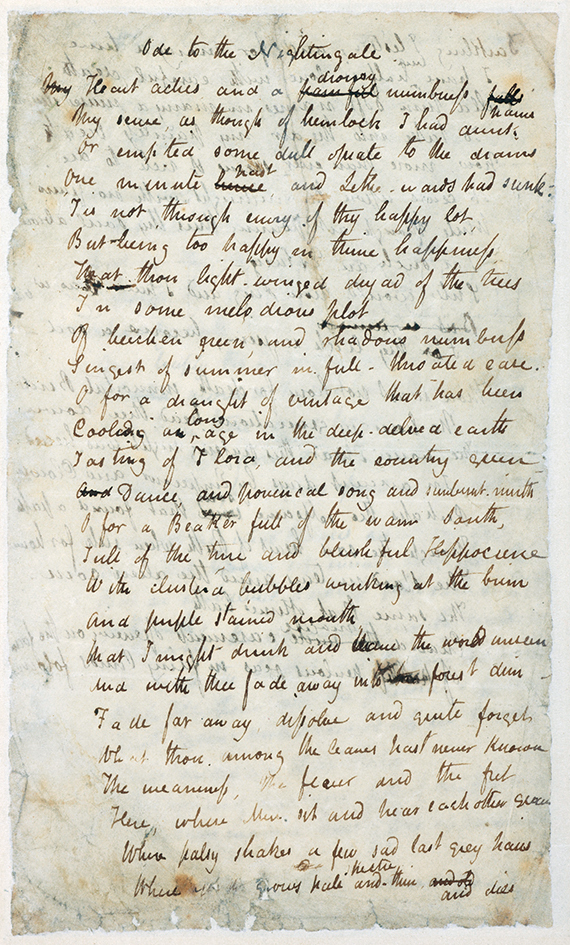 Ode to the Nightingale
My Heart aches and a drowsy painful numbness falls pains
My sense as though of hemlock I had drunk.
Or emptied some dull opiate to the drains
One minute hence past, and Lethe-wards had sunk-
Tis not through envy of thy happy lot,
But being too happy in thine happiness
That thou light-winged dryad of the trees
In some melodious plot
Of beechen green and shadows numberless
Singest of summer in full-throated ease.
O for a draught of vintage that has been
Cooling an long age in the deep-delved earth
Tasting of Flora, and the country green
And Dance, and provencal song and sunburnt mirth
O for a Beaker full of the warm South,
Full of the true and blushful Hippocrene
With cluster'd bubbles winking at the brim
And purple stained mouth
That I might drink and leave the world unseen
And with thee fade away into forest dim-
Fade far away, dissolve and quite forget
What thou among the leaves hast never known
The weariness, the fever and the fret
Here, where Men sit and hear each other groan
Where palsy shakes a few sad last grey hairs
Where grows pale and thin, and old and dies